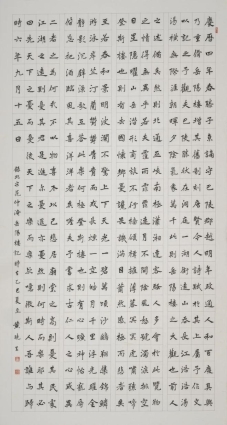 慶曆四年春滕子京謫守巴陵郡越明年政通人和百廢具興
乃重修岳陽樓增其舊制刻唐賢今人詩賦於其上屬予作文
以記之予觀夫巴陵勝狀在洞庭一湖銜遠山吞長江浩浩湯
湯橫無際涯朝暉夕陰氣象萬千此則岳陽樓之大觀也前人
之述備矣然則北通巫峽南極瀟湘遷客騷人多會於此覽物
之情得無異乎若夫霪雨霏霏連月不開陰風怒號濁浪排空
日星隱曜山岳潛形商旅不行檣傾楫摧薄暮冥冥虎嘯猿啼
登斯樓也則有去國懷鄉憂讒畏譏滿目蕭然感極而悲者矣
至若春和景明波瀾不驚上下天光一碧萬頃沙鷗翔集錦鱗
游泳岸芷汀蘭郁郁青青而或長煙一空皓月千里浮光躍金
靜影沉璧漁歌互答此樂何極登斯樓也則有心曠神怡寵辱
偕忘把酒臨風其喜洋洋者矣嗟夫予嘗求古仁人之心或異
二者之為何哉不以物喜不以己悲居廟堂之高則憂其民處
江湖之遠則憂其君是進亦憂退亦憂然則何時而樂耶其必
曰先天下之憂而憂後天下之樂而樂乎噫微斯人吾誰與歸
時六年九月十五日
錄北宋范仲淹岳陽樓記 乙巳夏 黃